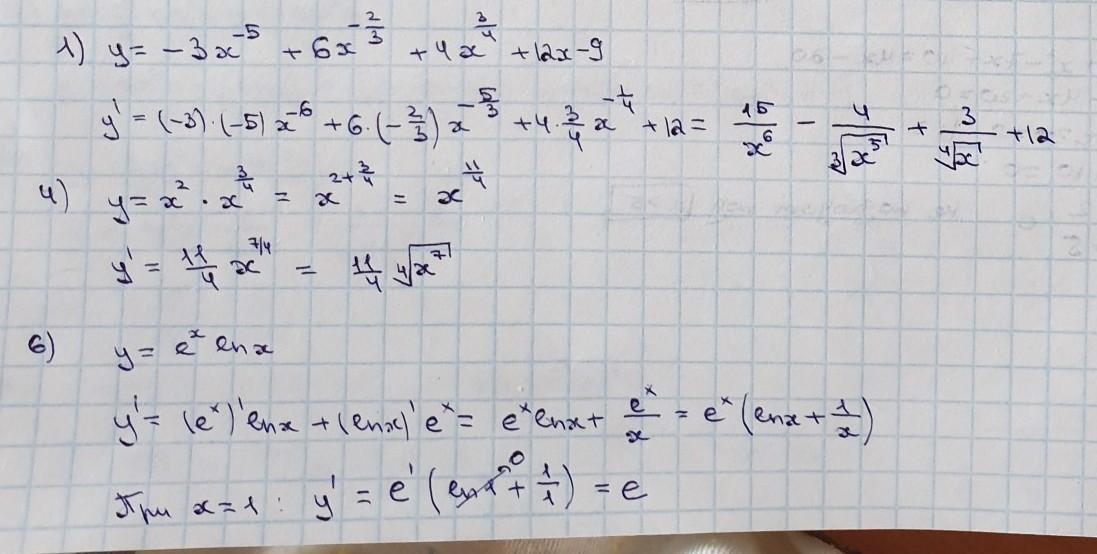 1) y = -3x^{-5} + 6x^{-\frac{2}{3}} + 4x^{\frac{3}{4}} + 12x - 9
y' = (-3)·(-5)x^{-6} + 6·(-\frac{2}{3})x^{-\frac{5}{3}} + 4·\frac{3}{4}x^{-\frac{1}{4}} + 12 = \frac{15}{x^6} - \frac{4}{\sqrt[3]{x^5}} + \frac{3}{\sqrt[4]{x}} + 12
4) y = x^2 · x^{\frac{3}{4}} = x^{2+\frac{3}{4}} = x^{\frac{11}{4}}
y' = \frac{11}{4}x^{7/4} = \frac{11}{4}\sqrt[4]{x^7}
6) y = e^x lnx
y' = (e^x)' lnx + (lnx)' e^x = e^x lnx + \frac{e^x}{x} = e^x (lnx + \frac{1}{x})
При x = 1 : y' = e^1 (ln1 + \frac{1}{1}) = e